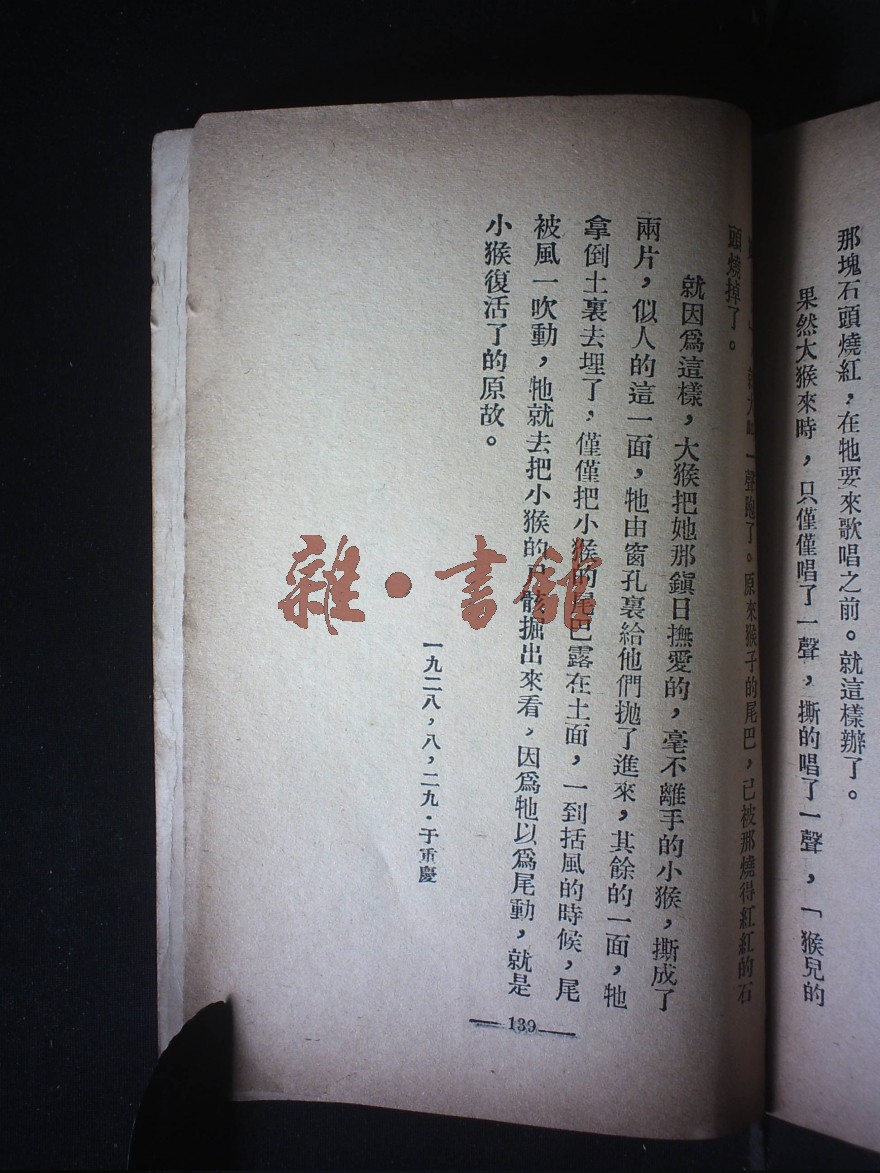 那塊石頭燒紅，在牠要來歌唱之前。就這樣辦了。
果然大猴來時，只僅僅唱了一聲，撕的唱了一聲，「猴兒的
一聲跑了。原來猴子的尾巴，已被那燒得紅紅的石
頭燒掉了。
就因爲這樣，大猴把她那鎭日撫愛的，毫不離手的小猴，撕成了
兩片，似人的這一面，牠由窗孔裏給他們拋了進來，其餘的一面，牠
拿倒土裏去埋了，僅僅把小猴的尾巴露在土面，一到括風的時候，尾
被風一吹動，牠就去把小猴的尸骸掘出來看，因爲牠以爲尾動，就是
小猴復活了的原故。
一九二八，八，二九·于重慶
139
雜·書舘